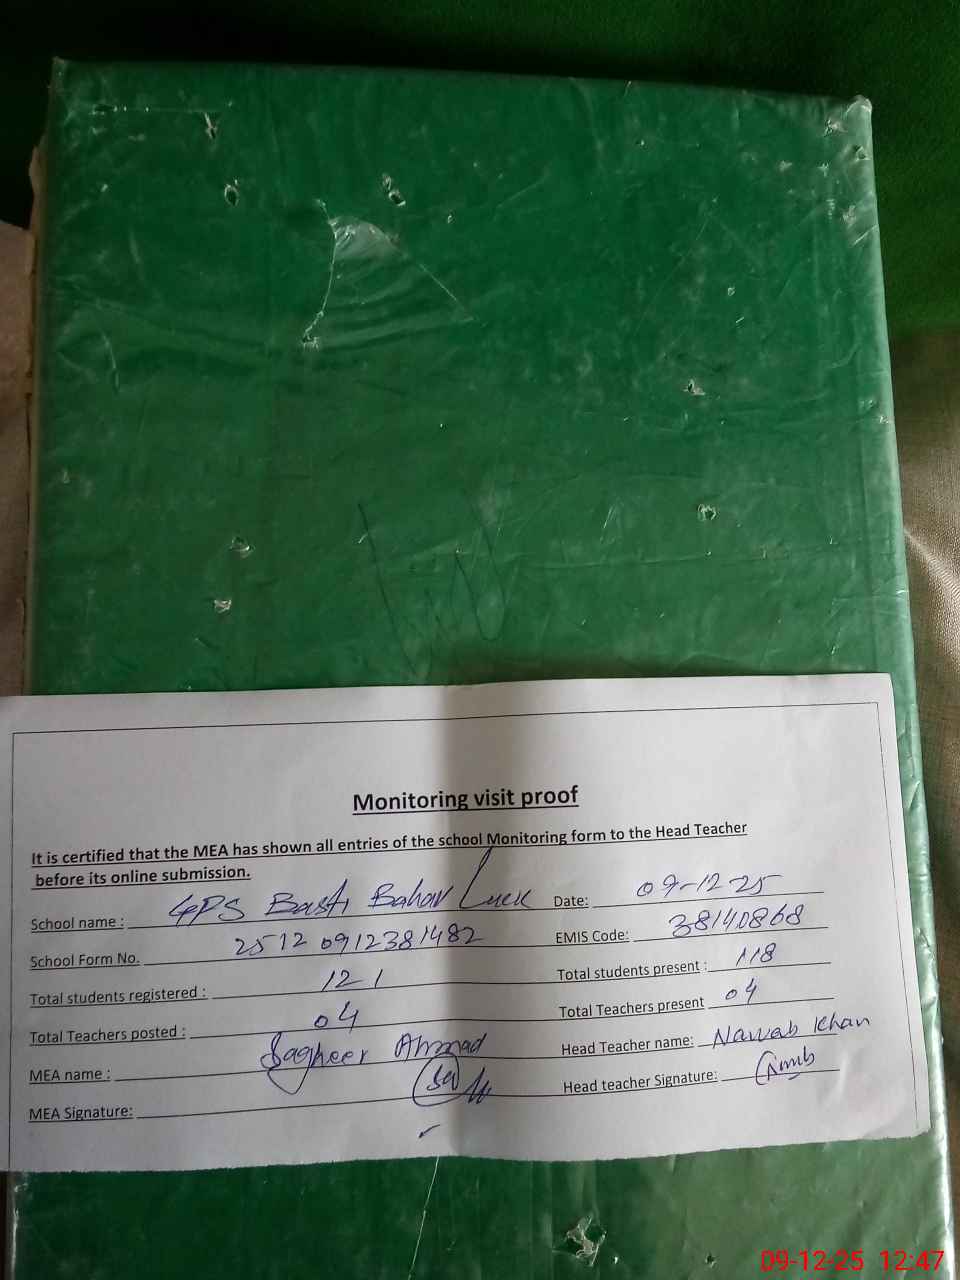 Monitoring visit proof
It is certified that the MEA has shown all entries of the school Monitoring form to the Head Teacher
before its online submission.
School name : GPS Basti Bahar Luck Date: 09-12-25
School Form No. 2512 0912381482 EMIS Code: 38140868
Total students registered : 121 Total students present : 118
Total Teachers posted : 04 Total Teachers present 04
MEA name : Sagheer Ahmad Head Teacher name: Nawab Khan
MEA Signature: Head teacher Signature:
09-12-25 12:47